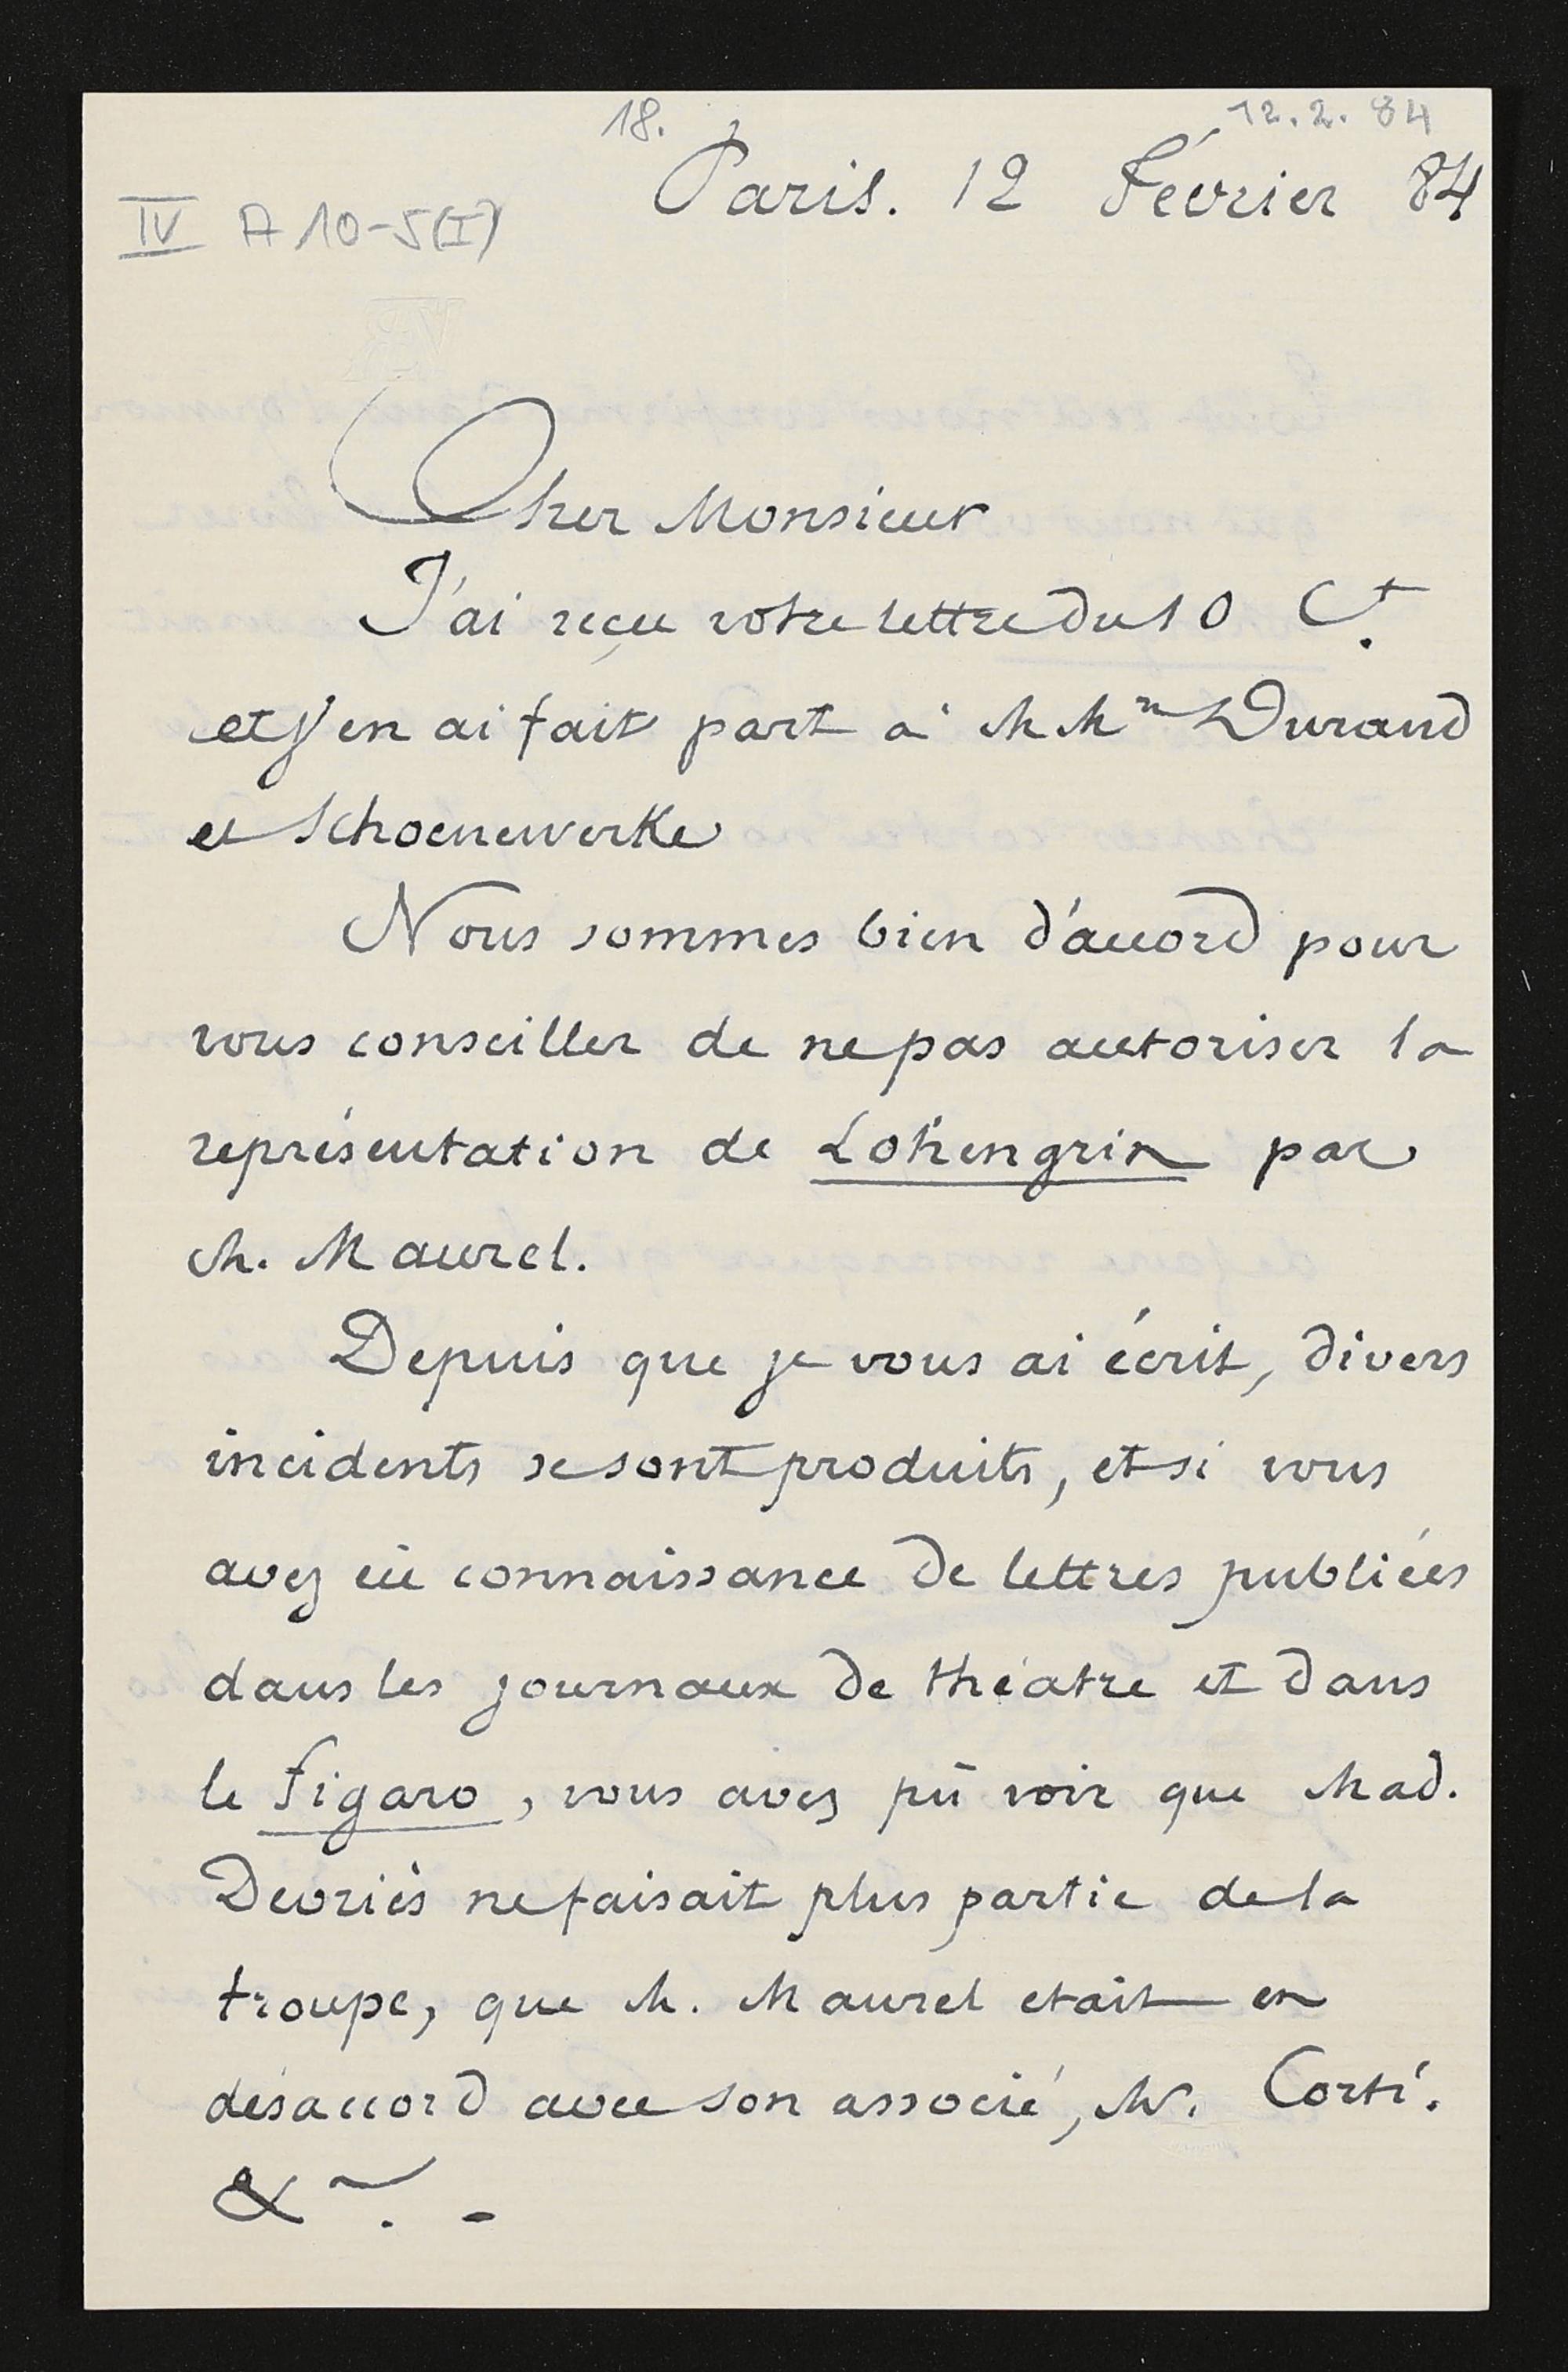 18.
12.2.84
Paris. 12 Février 84
IV A 10-5(I)
Cher Monsieur
J'ai reçu votre lettre du 10 Ct.
et j'en ai fait part à M Mrs Durand
et Schoenewerke
Nous sommes bien d'accord pour
vous conseiller de ne pas autoriser la
représentation de Lohengrin par
M. Maurel.
Depuis que je vous ai écrit, divers
incidents se sont produits, et si vous
avez eü connaissance de lettres publiées
dans les journaux de théatre et dans
le Figaro, vous avez pü voir que Mad.
Devriès ne faisait plus partie de la
troupe, que M. Maurel etait en
désaccord avec son associé, M. Corti.
&~. -